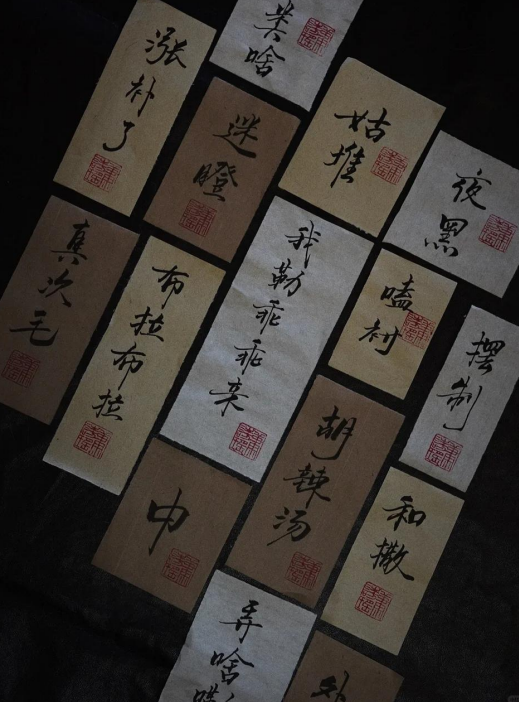 啥
涨补了
迷瞪
姑堆
夜黑
真次毛
布拉布拉
我勒乖乖来
嗑衬
摆制
中
胡辣汤
和撒
弄啥嘞